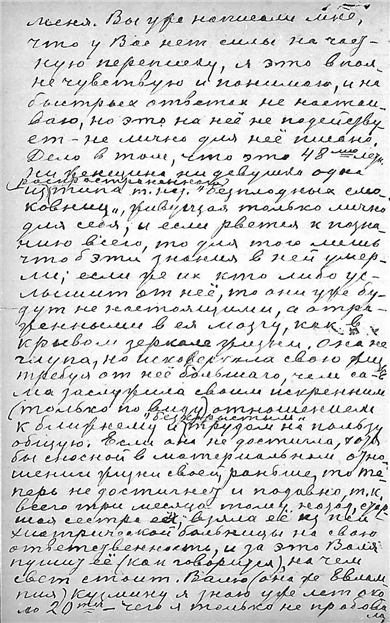 меня. Вы уже написали мне,
что у Вас нет силы на част-
ную переписку, я это вполне
не чувствую и понимаю, и на
быстрых ответах не настаи-
ваю, но это на неё не подейству
ет - не лично для неё письмо.
Дело в том, что это 48 летн.
ни женщина ни девушка одна
из типа т. наз. "безплодных смо
ковниц", живущая только лично
для себя, и если рвется к позна-
нию всего, то для того лишь
чтоб эти знания в ней умер-
ли; если же их кто либо ус-
лышит от неё, то они уже бу-
дут не настоящими, а отра-
женными в ея мозгу, как в
кривом зеркале жизни. Она не
глупа, но исковеркала свою жизнь
требуя от неё большаго, чем са-
ма заслужила своим искренним
(только по виду) отношением
к ближнему и трудом на пользу
общую. Если она не достигла, хотя
бы сносной в материальном отно-
шении жизни своей, раньше, то те-
перь не достигнет и подавно, т.к.
всего три месяца тому назад, стар
шая сестра её взяла её из пси
хиатрической больницы на свою
ответственность, и за это Валя
пушит её (как говорится), на чем
свет стоит. Валю (она же Евлам
пия) Кузмину я знаю уже лет око
ло 20ти - чего я только не пробова
ла,